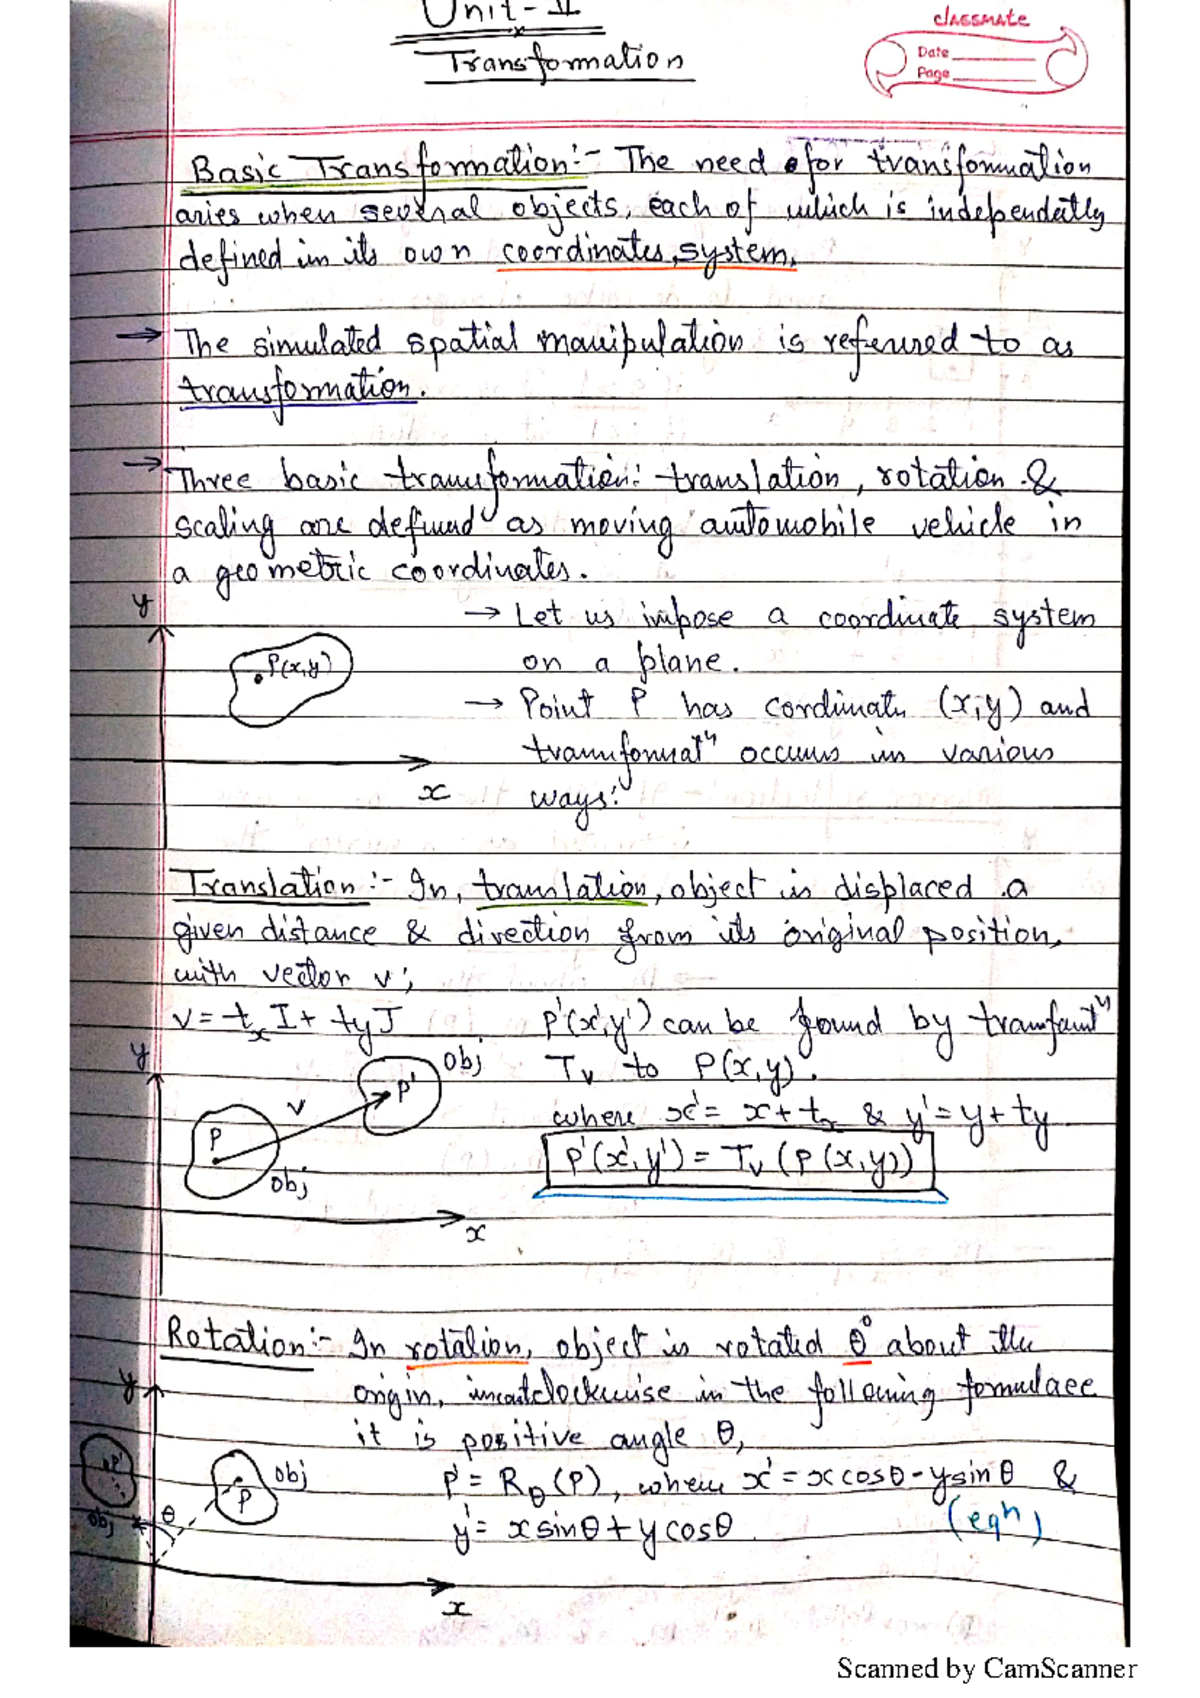 Unit-II
Transformation
classmate
Date
Page
Basic Transformation:- The need for transformation
aries when several objects, each of which is independently
defined in its own coordinates, system.
→ The simulated spatial manipulation is referred to as
transformation.
→ Three basic transformation: translation, rotation &
scaling are defined as moving automobile vehicle in
a geometric coordinates.
y
→ Let us impose a coordinate system
P(x,y)
on a plane.
→ Point P has cordinate (x,y) and
x
transformatⁿ occurs in various
ways:
Translation:- In, translation, object is displaced a
given distance & direction from its original position,
with vector v;
v = tx I + ty J
P'(x',y') can be found by
y
obj
Tv to P(x,y).
P'
v
where x' = x + tx & y' = y + ty
P
P'(x',y') = Tv (P(x,y))
obj
x
Rotation:- In rotation, object is rotated θ° about the
y
origin, in the following formulaee
it is positive angle θ,
P'
obj
P
P' = Rθ(P), where x' = x cosθ - y sinθ &
obj
θ
y' = x sinθ + y cosθ
(eqn)
x
Scanned by CamScanner